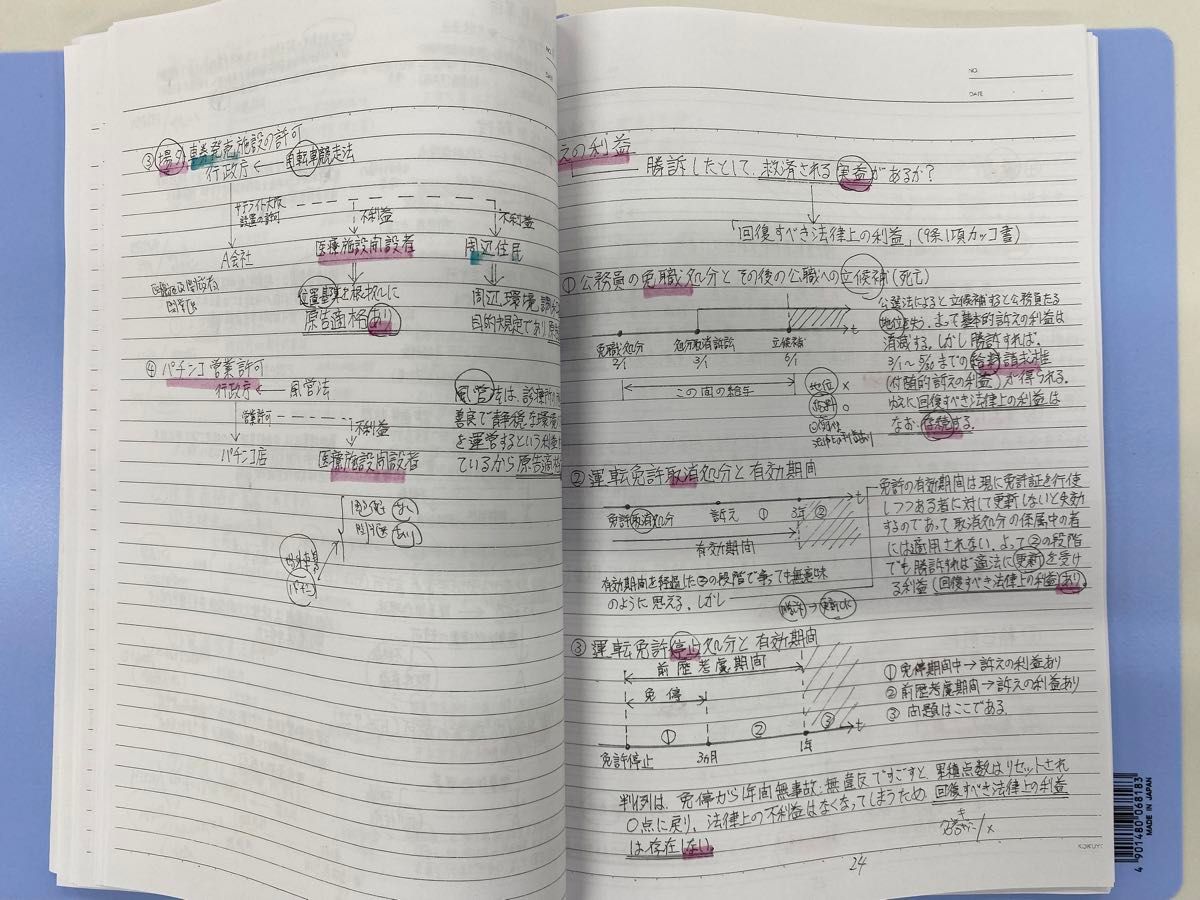 ③場外車券発売施設の許可
行政庁 ← 自転車競走法
サテライト大阪
設置の許可
不利益
不利益
A会社
医療施設開設者
周辺住民
位置基準を根拠に
原告適格あり
周辺環境調和
目的規定であり原告
④パチンコ営業許可
行政庁 ← 風営法
営業許可
不利益
パチンコ店
医療施設開設者
風営法は、診療所の
善良で静穏な環境
を運営するという利益
ているから原告適格
なし
あり
場外車券
パチンコ
NO.
DATE
えの利益
勝訴したとして、救済される実益があるか?
「回復すべき法律上の利益」(9条1項カッコ書)
①公務員の免職処分とその後の公職への立候補(死亡)
t
免職処分
処分取消訴訟
立候補
2/1
3/1
5/1
この間の給与
地位 ×
給料 ○
公選法によると立候補すると公務員たる
地位を失う。よって基本的訴えの利益は
消滅する。しかし勝訴すれば、
3/1〜5/30までの給料請求権
(付随的訴えの利益)が得られる。
ゆえに回復すべき法律上の利益は
なお、存続する。
②運転免許取消処分と有効期間
t
免許取消処分
訴え
①
3年
②
有効期間
有効期間を経過した②の段階で争っても無意味
のように思える。しかし
免許の有効期間は現に免許証を行使
しつつある者に対して更新しないと失効
するのであって取消処分の係属中の者
には適用されない。よって②の段階
でも勝訴すれば適法に更新を受け
る利益(回復すべき法律上の利益)あり。
勝訴 → 更新OK
③運転免許停止処分と有効期間
前歴考慮期間
免停
①
②
③
t
免許停止
3ヵ月
1年
①免停期間中→訴えの利益あり
②前歴考慮期間→訴えの利益あり
③問題はここである。
判例は、免停から1年間無事故・無違反ですごすと、累積点数はリセットされ
0点に戻り、法律上の不利益はなくなってしまうため、回復すべき法律上の利益
は存在しない。
24
KOKUYO
4 901480 068183
MADE IN JAPAN